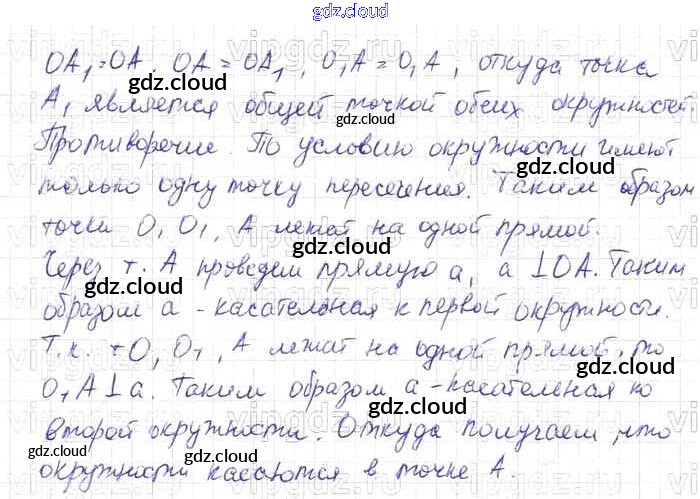 gdz.cloud
OA₁=OA. OA = OA₁, O₁A = O₁A, откуда точка
gdz.cloud
A₁ является общей точкой обеих окружностей
gdz.cloud
Противоречие. По условию окружности имеют
gdz.cloud
только одну точку пересечения. Таким образом
gdz.cloud
точки O, O₁, A лежат на одной прямой.
gdz.cloud
Через т. A проведем прямую a, a ⊥ OA. Таким
gdz.cloud
образом a - касательная к первой окружности.
gdz.cloud
Т.к. т O, O₁, A лежат на одной прямой, то
gdz.cloud
O₁A ⊥ a. Таким образом a - касательная ко
gdz.cloud
второй окружности. Откуда получаем, что
gdz.cloud
окружности касаются в точке A.
gdz.cloud